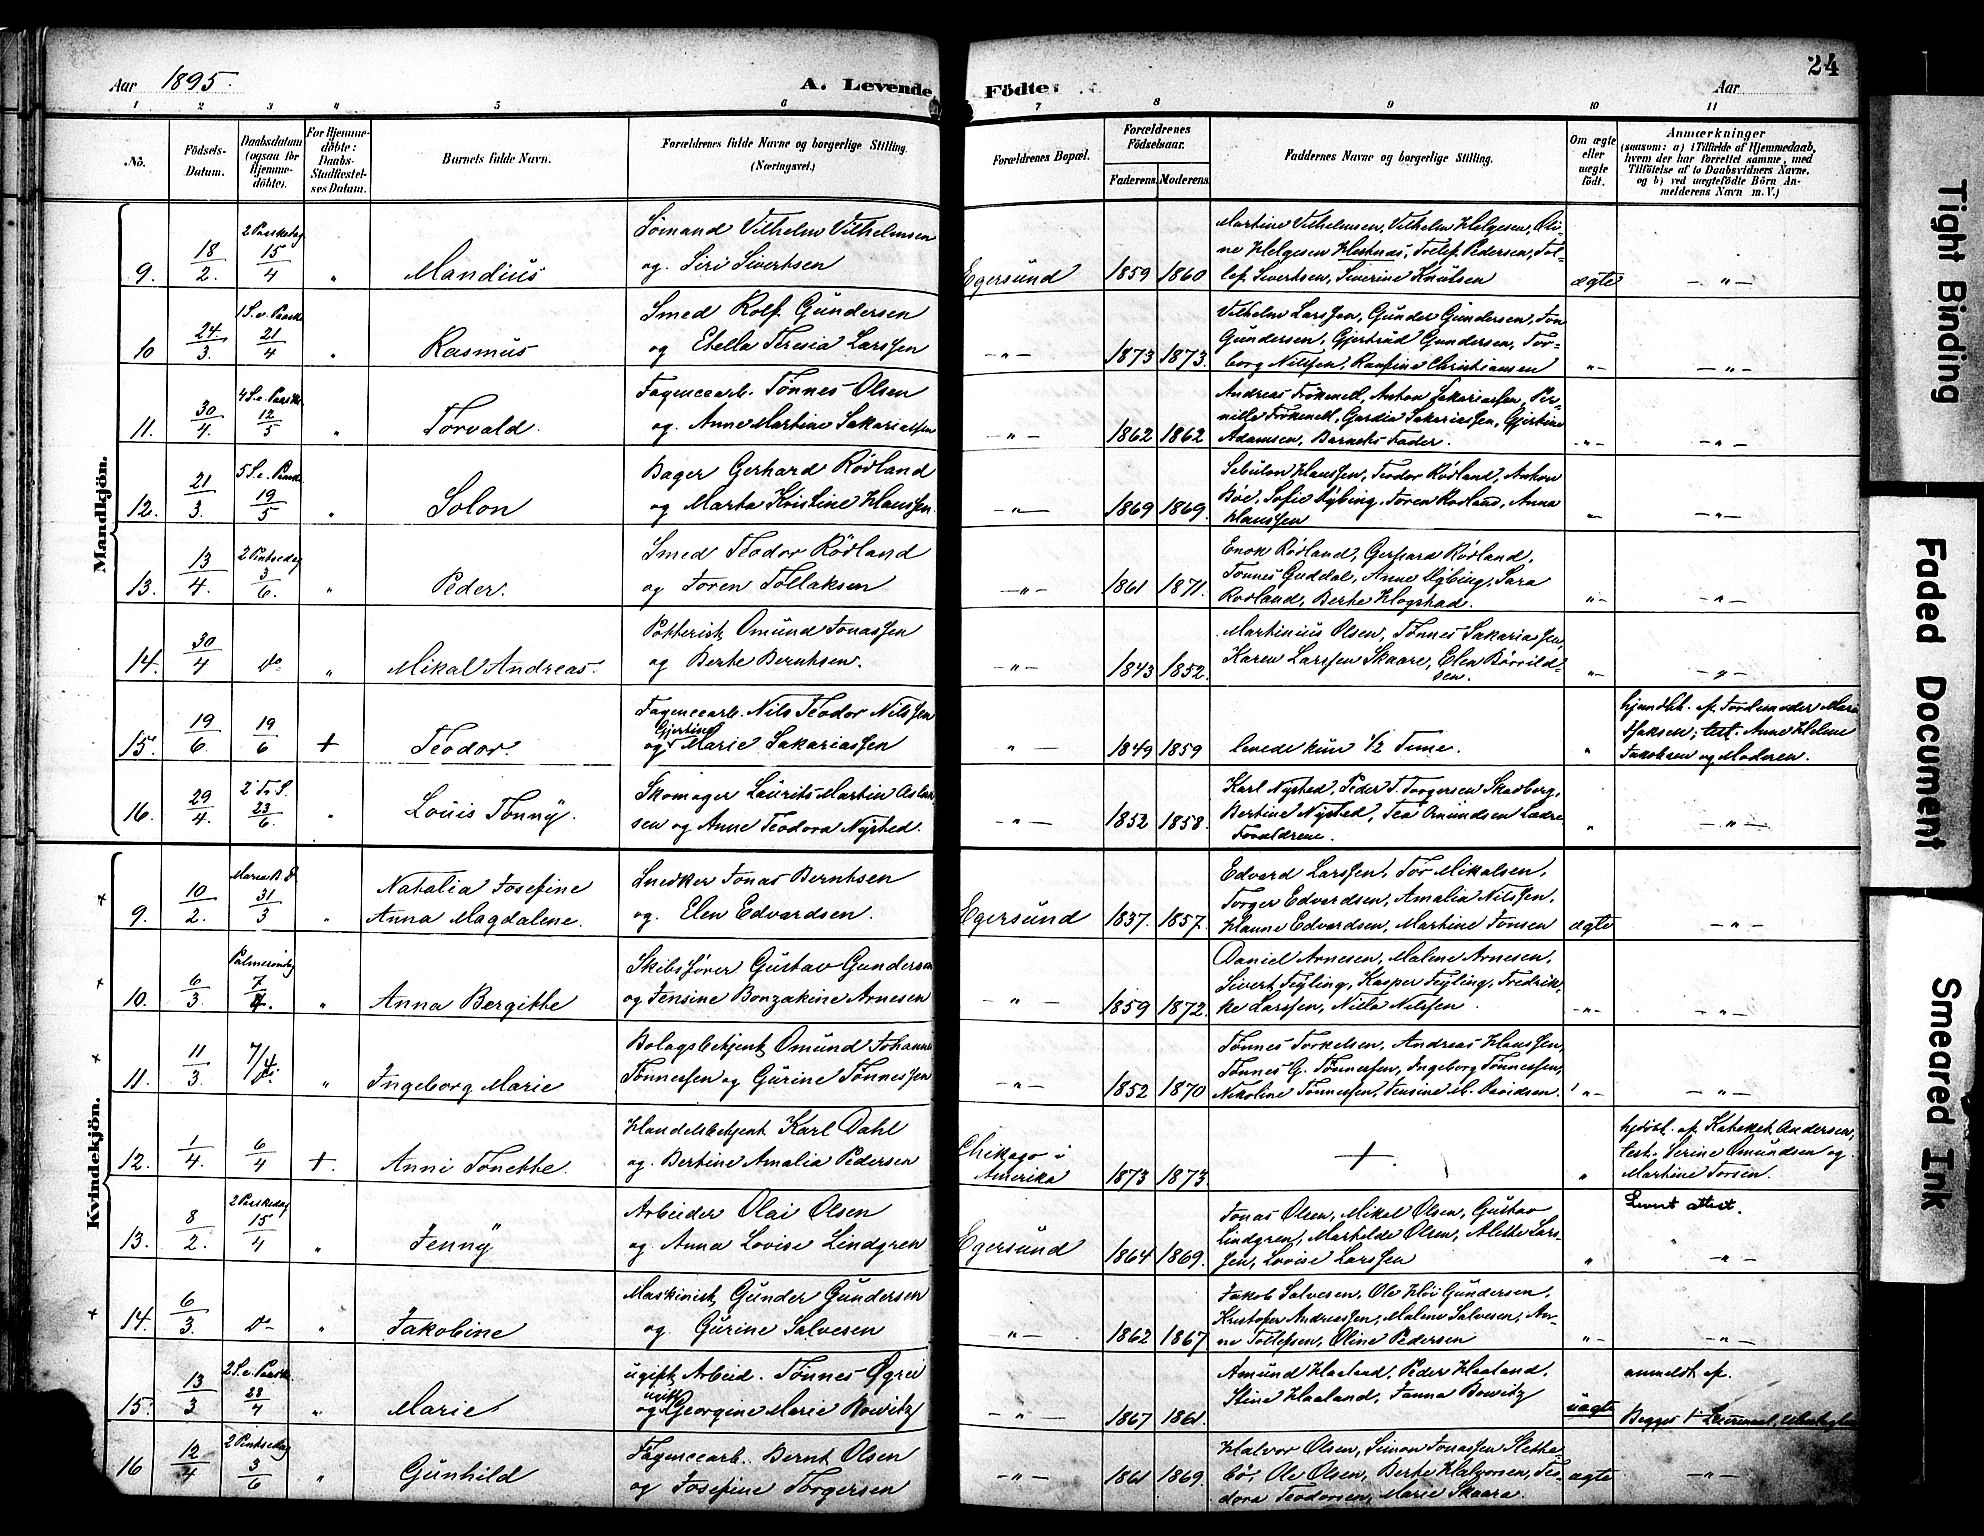 Aar 1895.
A. Levende Födte:
Aar
24
1 2 3 4 5 6 7 8 9 10 11
No.
Födsels-Datum.
Daabsdatum (ogsaa for Hjemme-döbte).
For Hjemme-döbte: Daabs-Stadfæstel-ses Datum.
Barnets fulde Navn.
Forældrenes fulde Navne og borgerlige Stilling. (Næringsvei.)
Forældrenes Bopæl.
Forældrenes Födselsaar.
Faderens. Moderens.
Faddernes Navne og borgerlige Stilling.
Om ægte eller uægte födt.
Anmærkninger
(saasom: a) i Tilfælde af Hjemmedaab, hvem der har forrettet samme, med Tilföielse af to Daabsvidners Navne, og b) ved uægtefödte Börn Anmelderens Navn m. V.)
Mandkjön.
9. 18/2. 2 Paaskedag 15/4 " Mandius
Sømand Vilhelm Vilhelmsen
og Siri Sivertsen
Egersund 1859 1860
Martine Vilhelmsen, Vilhelm Helgesen, Oli-
ne Helgesen Hestnæs, Tollef Pedersen, Tol-
lef Sivertsen, Siverine Knutsen
ægte — " —
10 24/3. 1 S. e. Paaske 21/4 " Rasmus
Smed Rolf Gundersen
og Etella Teresia Larssen
— " — 1873 1873.
Vilhelm Larssen, Gunder Gundersen, Jon
Gundersen, Gjertrud Gundersen, Tor-
borg Nilssen, Christiansen
" — — " —
11. 30/4. 4 S. e. Paaske 12/5 " Torvald.
Fayencearb. Tønnes Olsen
og Anne Martine Sakariassen
— " — 1862 1862
Andreas Anton Sakariassen, Per-
nille Sakariassen, Gjertine
Adamsen, Barnets Fader.
" — — " —
12. 21/3. 5 S. e. Paaske 19/5 " Solon
Bager Gerhard Rødland
og Marta Kristine Hanssen.
— " — 1869 1869.
Sebulon Hanssen, Teodor Rødland, Anton
Bøe, Sofie Nybing, Joren Rødland, Anna
Hanssen
" — — " —
13. 13/4. 2 Pintsedag 3/6. " Peder.
Smed Teodor Rødland
og Joren Tollaksen
— " — 1861 1871.
Enok Rødland, Gerhard Rødland,
Tønnes Guddal, Anne Nybing, Sara
Rødland, Berte Hogstad.
" — — " —
14. 30/4 do " Mikal Andreas.
Potterisk. Omund Jonassen
og Berte Berntsen.
— " — 1843 1852.
Martinius Olsen, Tønnes Sakariassen,
Karen Larssen Skaare, Elen Børrild-
sen.
" — — " —
15. 19/6. 19/6 + Teodor.
Fayencearb. Nils Teodor Nilssen
og Gjertine Marie Sakariassen
" — 1849 1859
levede kun 1/2 Time.
"
hjemdbt. af Jordemoder
test. Anne Helene
Jakobsen og Moderen.
16. 29/4. 2 Tr. S. 23/6. " Louis Tonny.
Skomager Laurits Martin Aslak-
sen og Anne Teodora Nysted.
— " — 1852 1858.
Karl Nysted, Peder T. Torgersen Skadberg,
Bertine Nysted, Tea Omundsen
Forældrene.
" — " —
Kvindekjön.
× 9. 10/2. Maria B. D. 31/3 " Natalia Josefine
Anna Magdalene.
Snedker Jonas Berntsen
og Elen Edvardsen.
Egersund 1837. 1857.
Edvard Larssen, Tor Mikalsen,
Torger Edvardsen, Amalia Nilssen,
Hanne Edvardsen, Martine Jonsen
ægte — " —
× 10. 6/3. Palmesøndag 7/4. " Anna Bergitte
Skibsfører Gustav Gundersen
og Jensine Bonzakine Arnesen
— " — 1859 1872.
Daniel Arnesen, Malene Arnesen,
Sivert Feyling, Kasper Feyling, Fredrik-
ke Larssen, Niels Nilssen
— " — — " —
× 11. 11/3. 7/4. " Ingeborg Marie
Bolagsbetjent Omund Johannes
Tønnessen og Gurine Tønnessen
— " — 1852 1870
Tønnes Torkelsen, Andreas Hanssen,
Tønnes G. Tønnessen, Ingeborg Tønnessen,
Nikoline Tønnessen, Jensine M. Davidsen.
" — — " —
12. 1/4. 6/4 +. Anni Tonette.
Handelsbetjent Karl Dahl
og Bertine Amalia Pedersen
Chikago i
Amerika 1873 1873.
+.
"
hjdbt. af Kateket Andersen,
test. Serine Omundsen og
Martine Torsen.
13. 8/2. 2 Paaskedag 15/4 " Jenny
Arbeider Olai Olsen
og Anna Lovise Lindgren
Egersund 1864 1869.
Jonas Olsen, Mikal Olsen, Gustav
Lindgren, Marthilde Olsen, Alette Lars-
sen, Lovise Larssen
"
Levert attest.
"
× 14. 6/3. do " Jakobine
Maskinist Gunder Gundersen
og Gurine Salvesen
— " — 1862 1867
Jakob Salvesen, Ole Høi Gundersen,
Kristofer Andreassen, Malene Salvesen, An-
ne Tollefsen, Oline Pedersen
" — — " —
15. 13/3 2 S. e. Paaske 28/4 " Marie
ugift Arbeid. Tønnes Øgrei
og ugift Georgine Marie Bowitz
— " — 1867 1861.
Amund Haaland, Peder Haaland,
Stine Haaland, Janna Bowitz
uægte
anmeldt af.
16 12/4 2 Pintsedag 3/6 " Gunhild
Fayencearb. Bernt Olsen
og Josefine Torgersen
— " — 1861 1869.
Halvor Olsen, Simon Jonassen Slette-
bø, Ole Olsen, Berte Halvorsen, Teo-
dora Teodorsen, Marie Skaara.
ægte — " —
Tight Binding
Faded Document
Smeared Ink